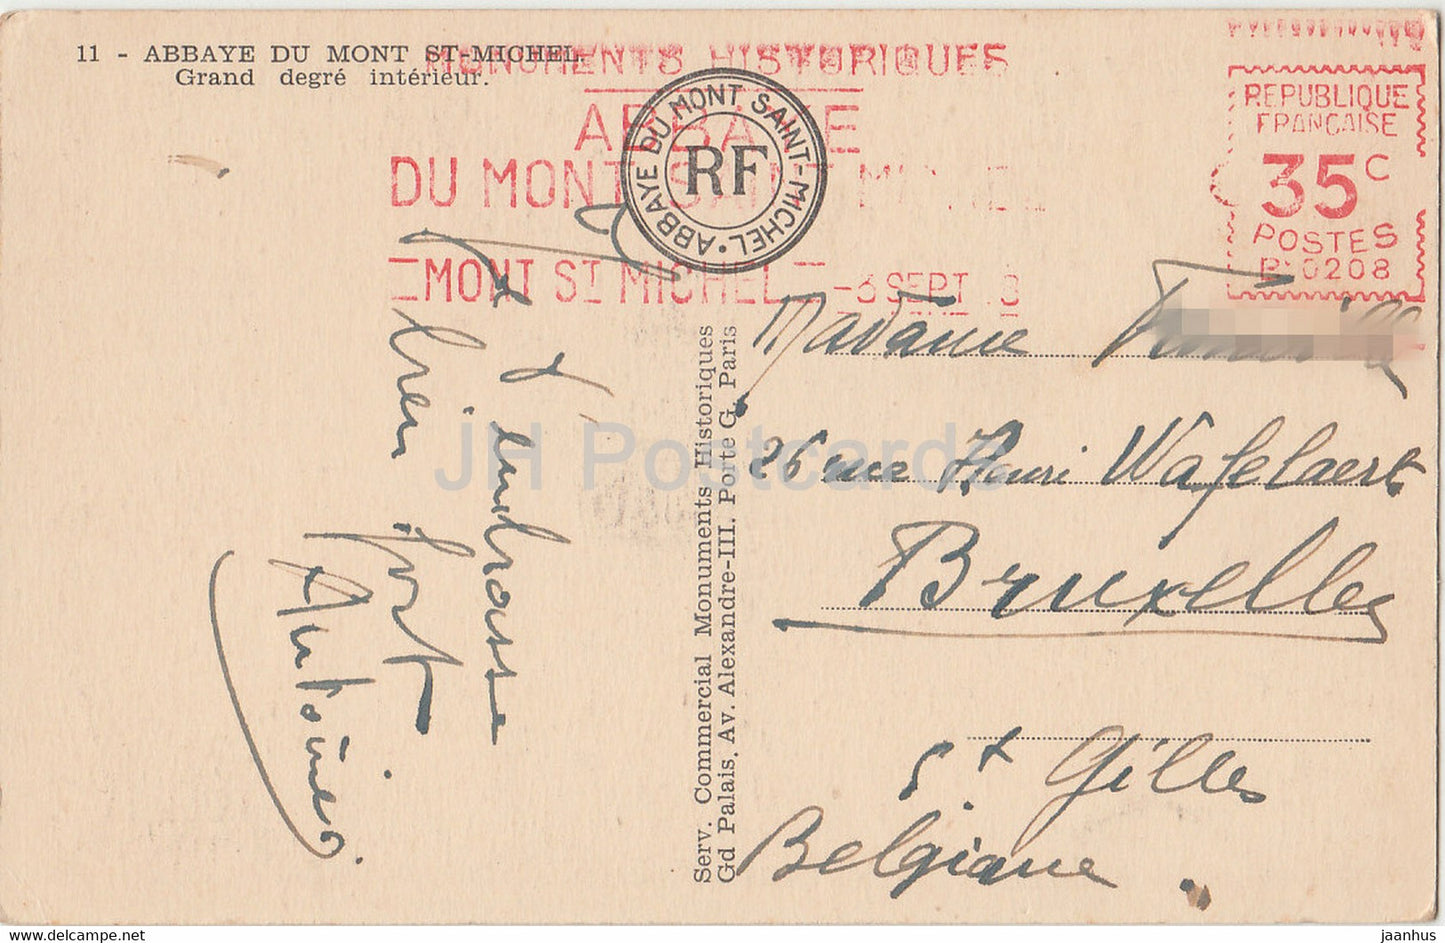 11 - ABBAYE DU MONT ST-MICHEL.
Grand degré intérieur.
MONUMENTS HISTORIQUES
ABBAYE
DU MONT SAINT MICHEL
MONT ST MICHEL
-3 SEPT 8
ABBAYE DU MONT SAINT-MICHEL
RF
REPUBLIQUE
FRANÇAISE
35c
POSTES
P.0208
Madame
26 rue Henri Wafelaerts
Bruxelles
St Gilles
Belgique
J embrasse
bien fort
Antoine
Serv. Commercial Monuments Historiques
Gd Palais. Av. Alexandre-III. Porte G. Paris
JH Postcards
www.delcampe.net
jaanhus